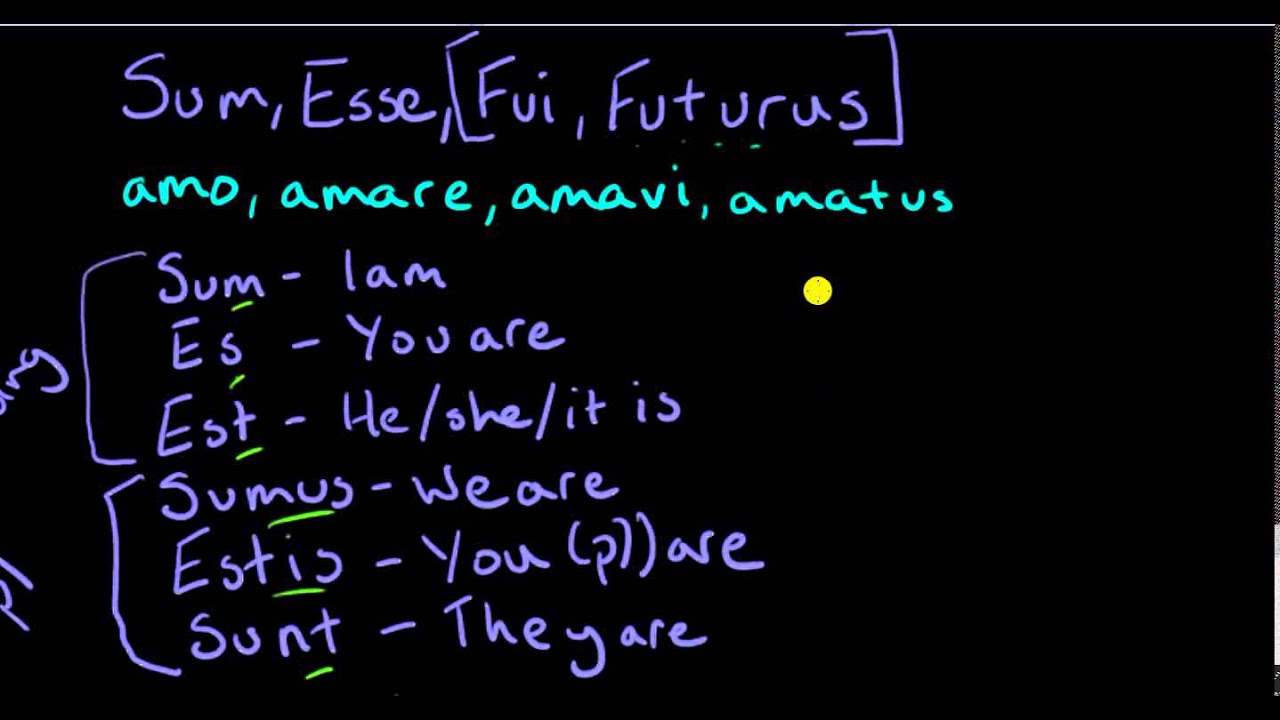 Sum, Esse, [Fui, Futurus]
amo, amare, amavi, amatus
Sum - I am
Es - You are
Est - He/she/it is
Sumus - We are
Estis - You (pl) are
Sunt - They are
pl